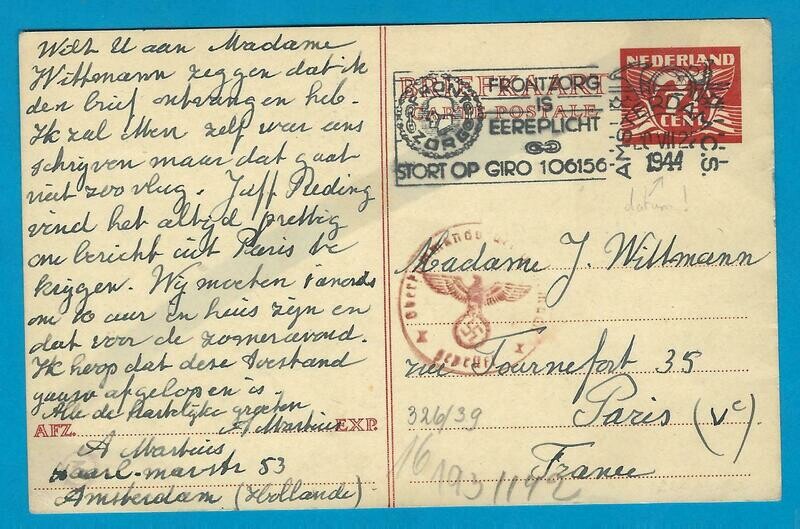 Wilt U aan Madame
Wittmann zeggen dat ik
den brief ontvangen heb.
Ik zal Men zelf war eens
schrijven maar dat gaat
niet zoo vlug. Juff Reding
vind het altijd prettig
om bericht uit Paris te
krijgen. Wij moeten 's avonds
om 10 uur in huis zijn en
dat voor de zomeravond.
Ik hoop dat deze toestand
gauw afgelopen is.
Alle de hartelijke groeten
A Martius
AFZ. EXP.
A Martius
Haarl.marstr 53
Amsterdam (Hollande)
BRIEFKAART
CARTE POSTALE
NEDERLAND
CENT
FRONTZORG
IS
EEREPLICHT
STORT OP GIRO 106156
AMSTERDAM C.S.
1944
datum!
Oberkommando der
geprüft
Madame J. Wittmann
rue Tournefort 35
Paris (Ve)
France
326/39
16
193/142